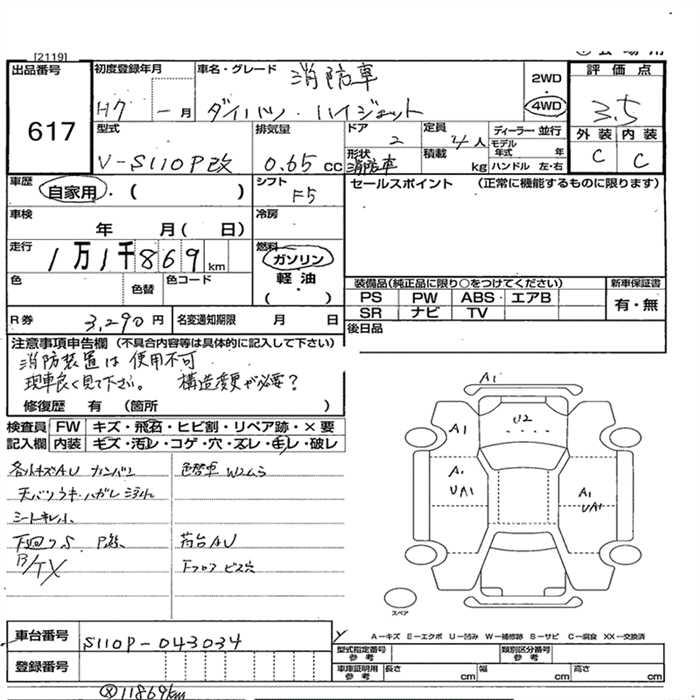 [2119]
出品番号
617
初度登録年月
H7 - 月
車名・グレード
消防車
ダイハツ・ハイジェット
2WD
4WD
評価点
3.5
外装 内装
C C
型式
V-S110P改
排気量
0.65 cc
ドア
2
定員
4人
形状
消防車
積載
kg
ディーラー・並行
モデル年式 年
ハンドル 左・右
車歴
自家用・( )
シフト
F5
セールスポイント (正常に機能するものに限ります)
車検
年 月( 日)
冷房
走行
1万1千869 km
燃料
ガソリン
軽油
( )
色
色替
色コード
装備品(純正品に限り○をつけてください)
PS PW ABS エアB
SR ナビ TV
新車保証書
有・無
R券
3,290円
名変通知期限 月 日
後日品
注意事項申告欄 (不具合内容等は具体的に記入して下さい)
消防装置は使用不可
現車良く見て下さい。 構造変更が必要?
修復歴 有 (箇所 )
検査員記入欄
FW キズ・飛石・ヒビ割・リペア跡・×要
内装 キズ・汚レ・コゲ・穴・スレ・キレ・破レ
色替車 W2ムラ
シートキレ
荷台AU
A1
U2
A1
A1
A1
UA1
A1
UA1
スペア
A-キズ E-エクボ U-凹み W-補修跡 S-サビ C-腐食 XX-交換済
車台番号
S110P-043034
登録番号
型式指定番号
参考
類別区分番号
参考
車庫証明用
参考
長さ cm
幅 cm
高さ cm
11869km